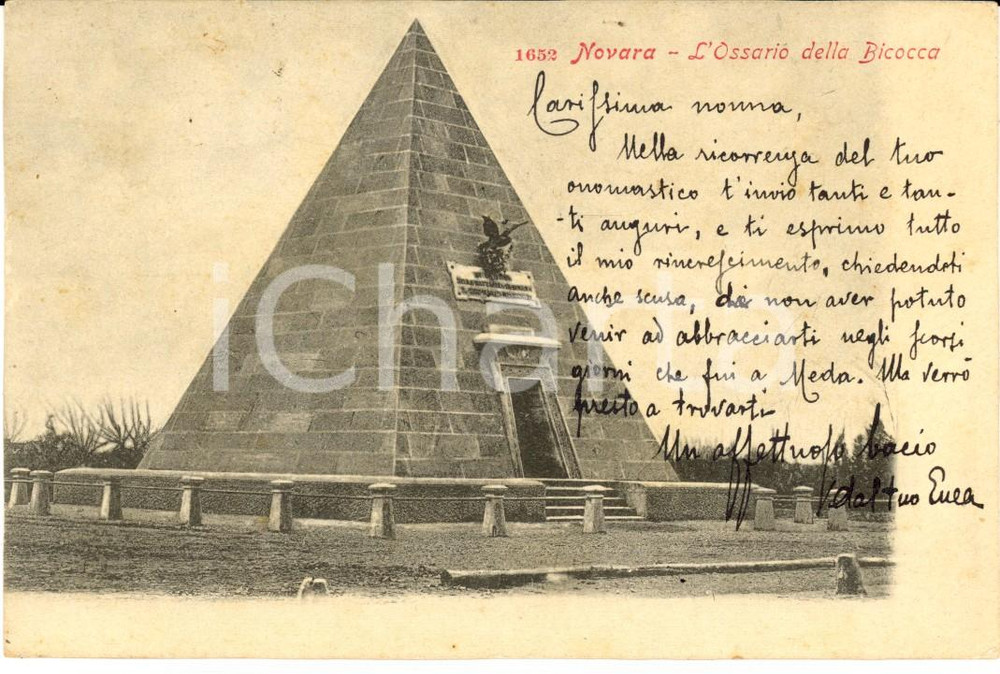 1652 Novara - L'Ossario della Bicocca
Carissima nonna,
Nella ricorrenza del tuo
onomastico t'invio tanti e tan-
-ti auguri, e ti esprimo tutto
il mio rincrescimento, chiedendoti
anche scusa, di non aver potuto
venir ad abbracciarti negli scorsi
giorni che fui a Meda. Ma verrò
presto a trovarti.
Un affettuoso bacio
dal tuo Enea
iCharta